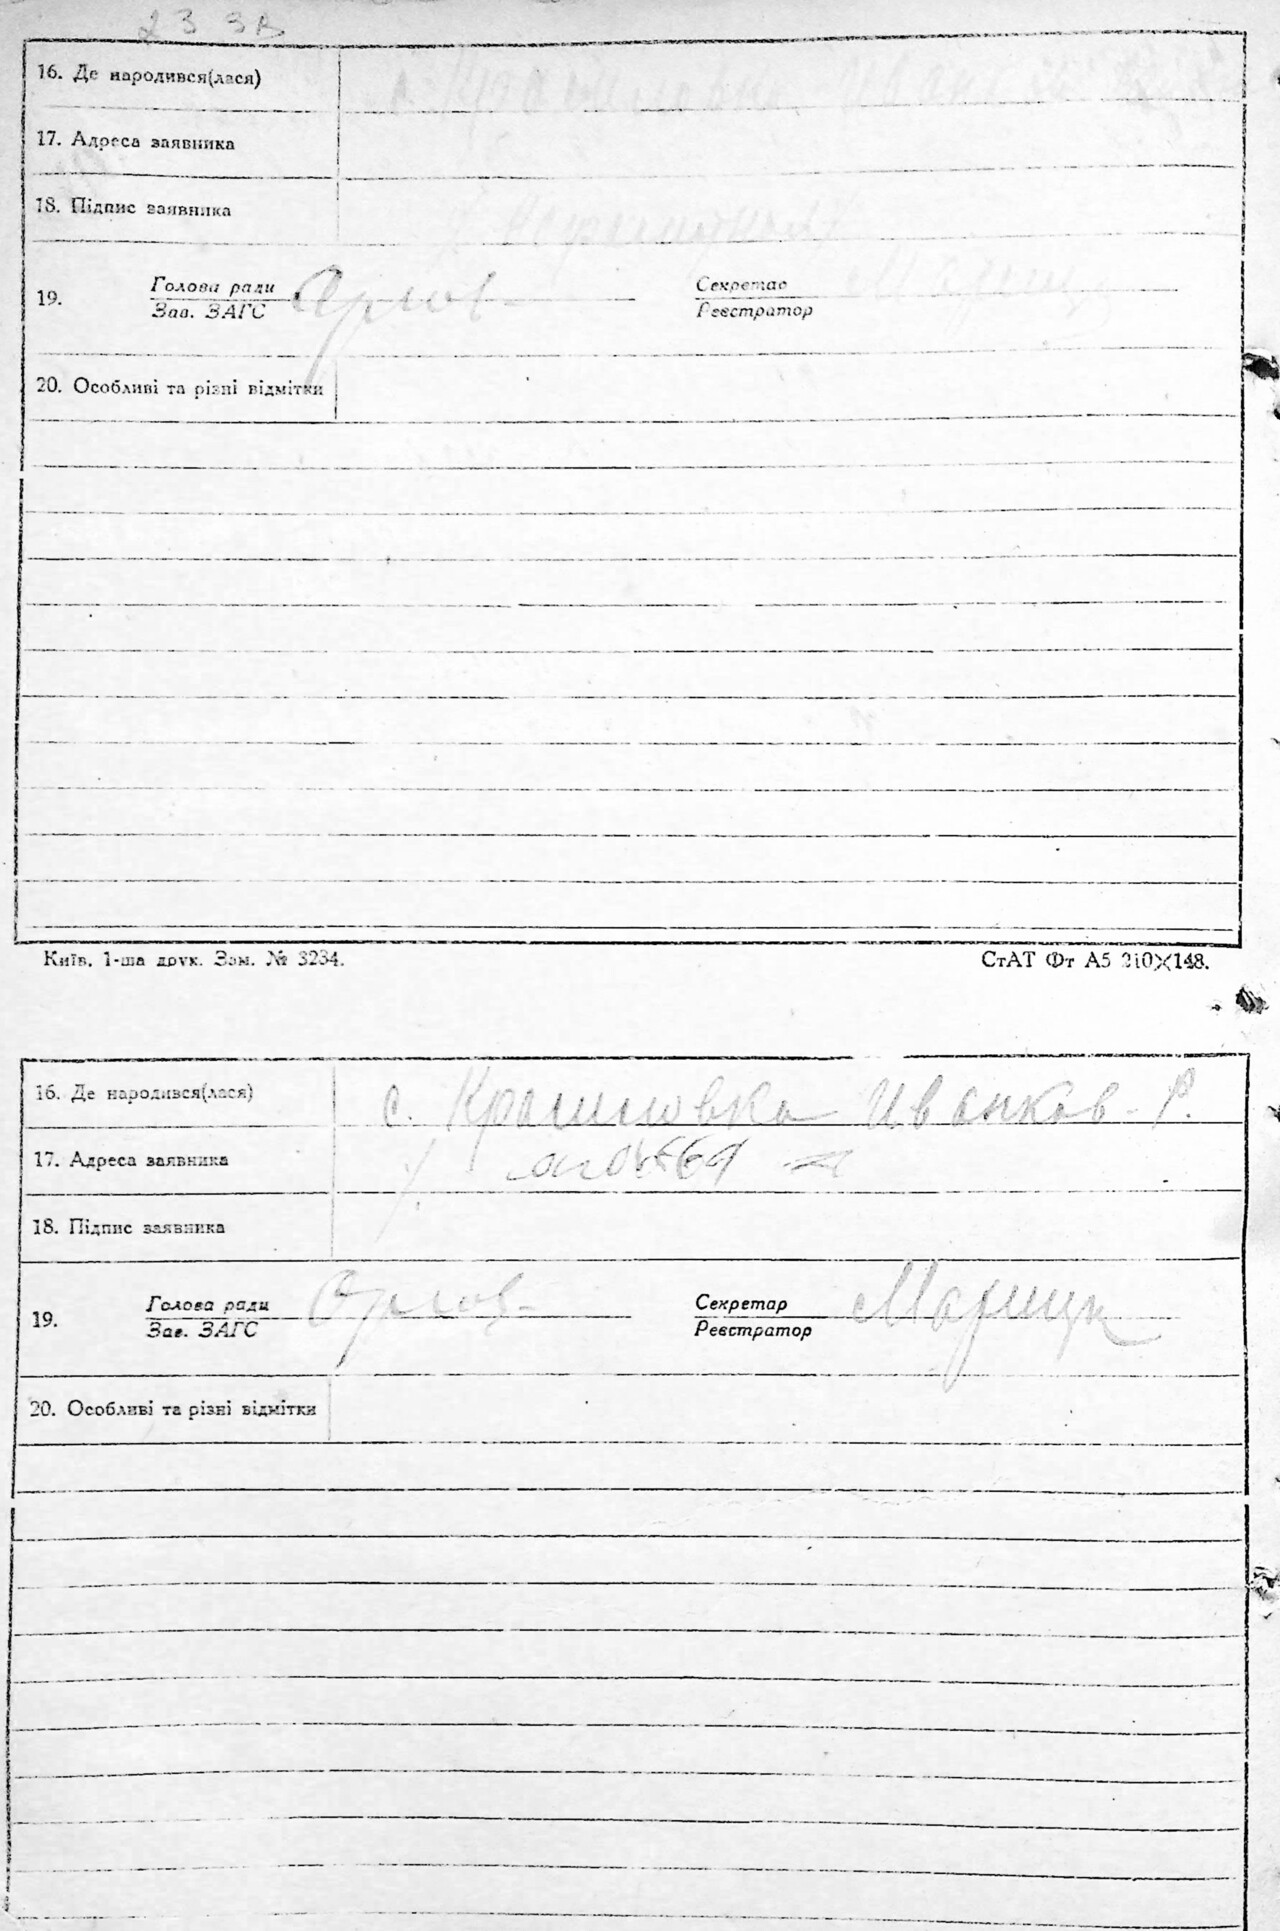 23 зв
16. Де народився(лася)
17. Адреса заявника
18. Підпис заявника
19. Голова ради Орлов Секретар
Зав. ЗАГС Реєстратор
20. Особливі та різні відмітки
Київ. 1-ша друк. Зам. № 3234. СтАТ Фт А5 210×148.
16. Де народився(лася) с. Крашиловка Иванков. Р.
17. Адреса заявника
18. Підпис заявника
19. Голова ради Орлов Секретар Марищук
Зав. ЗАГС Реєстратор
20. Особливі та різні відмітки